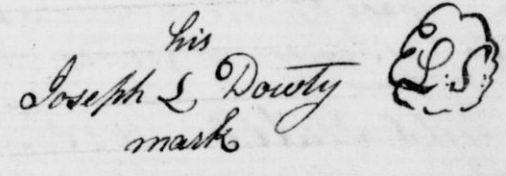 his
Joseph L Dowty L.S.
mark